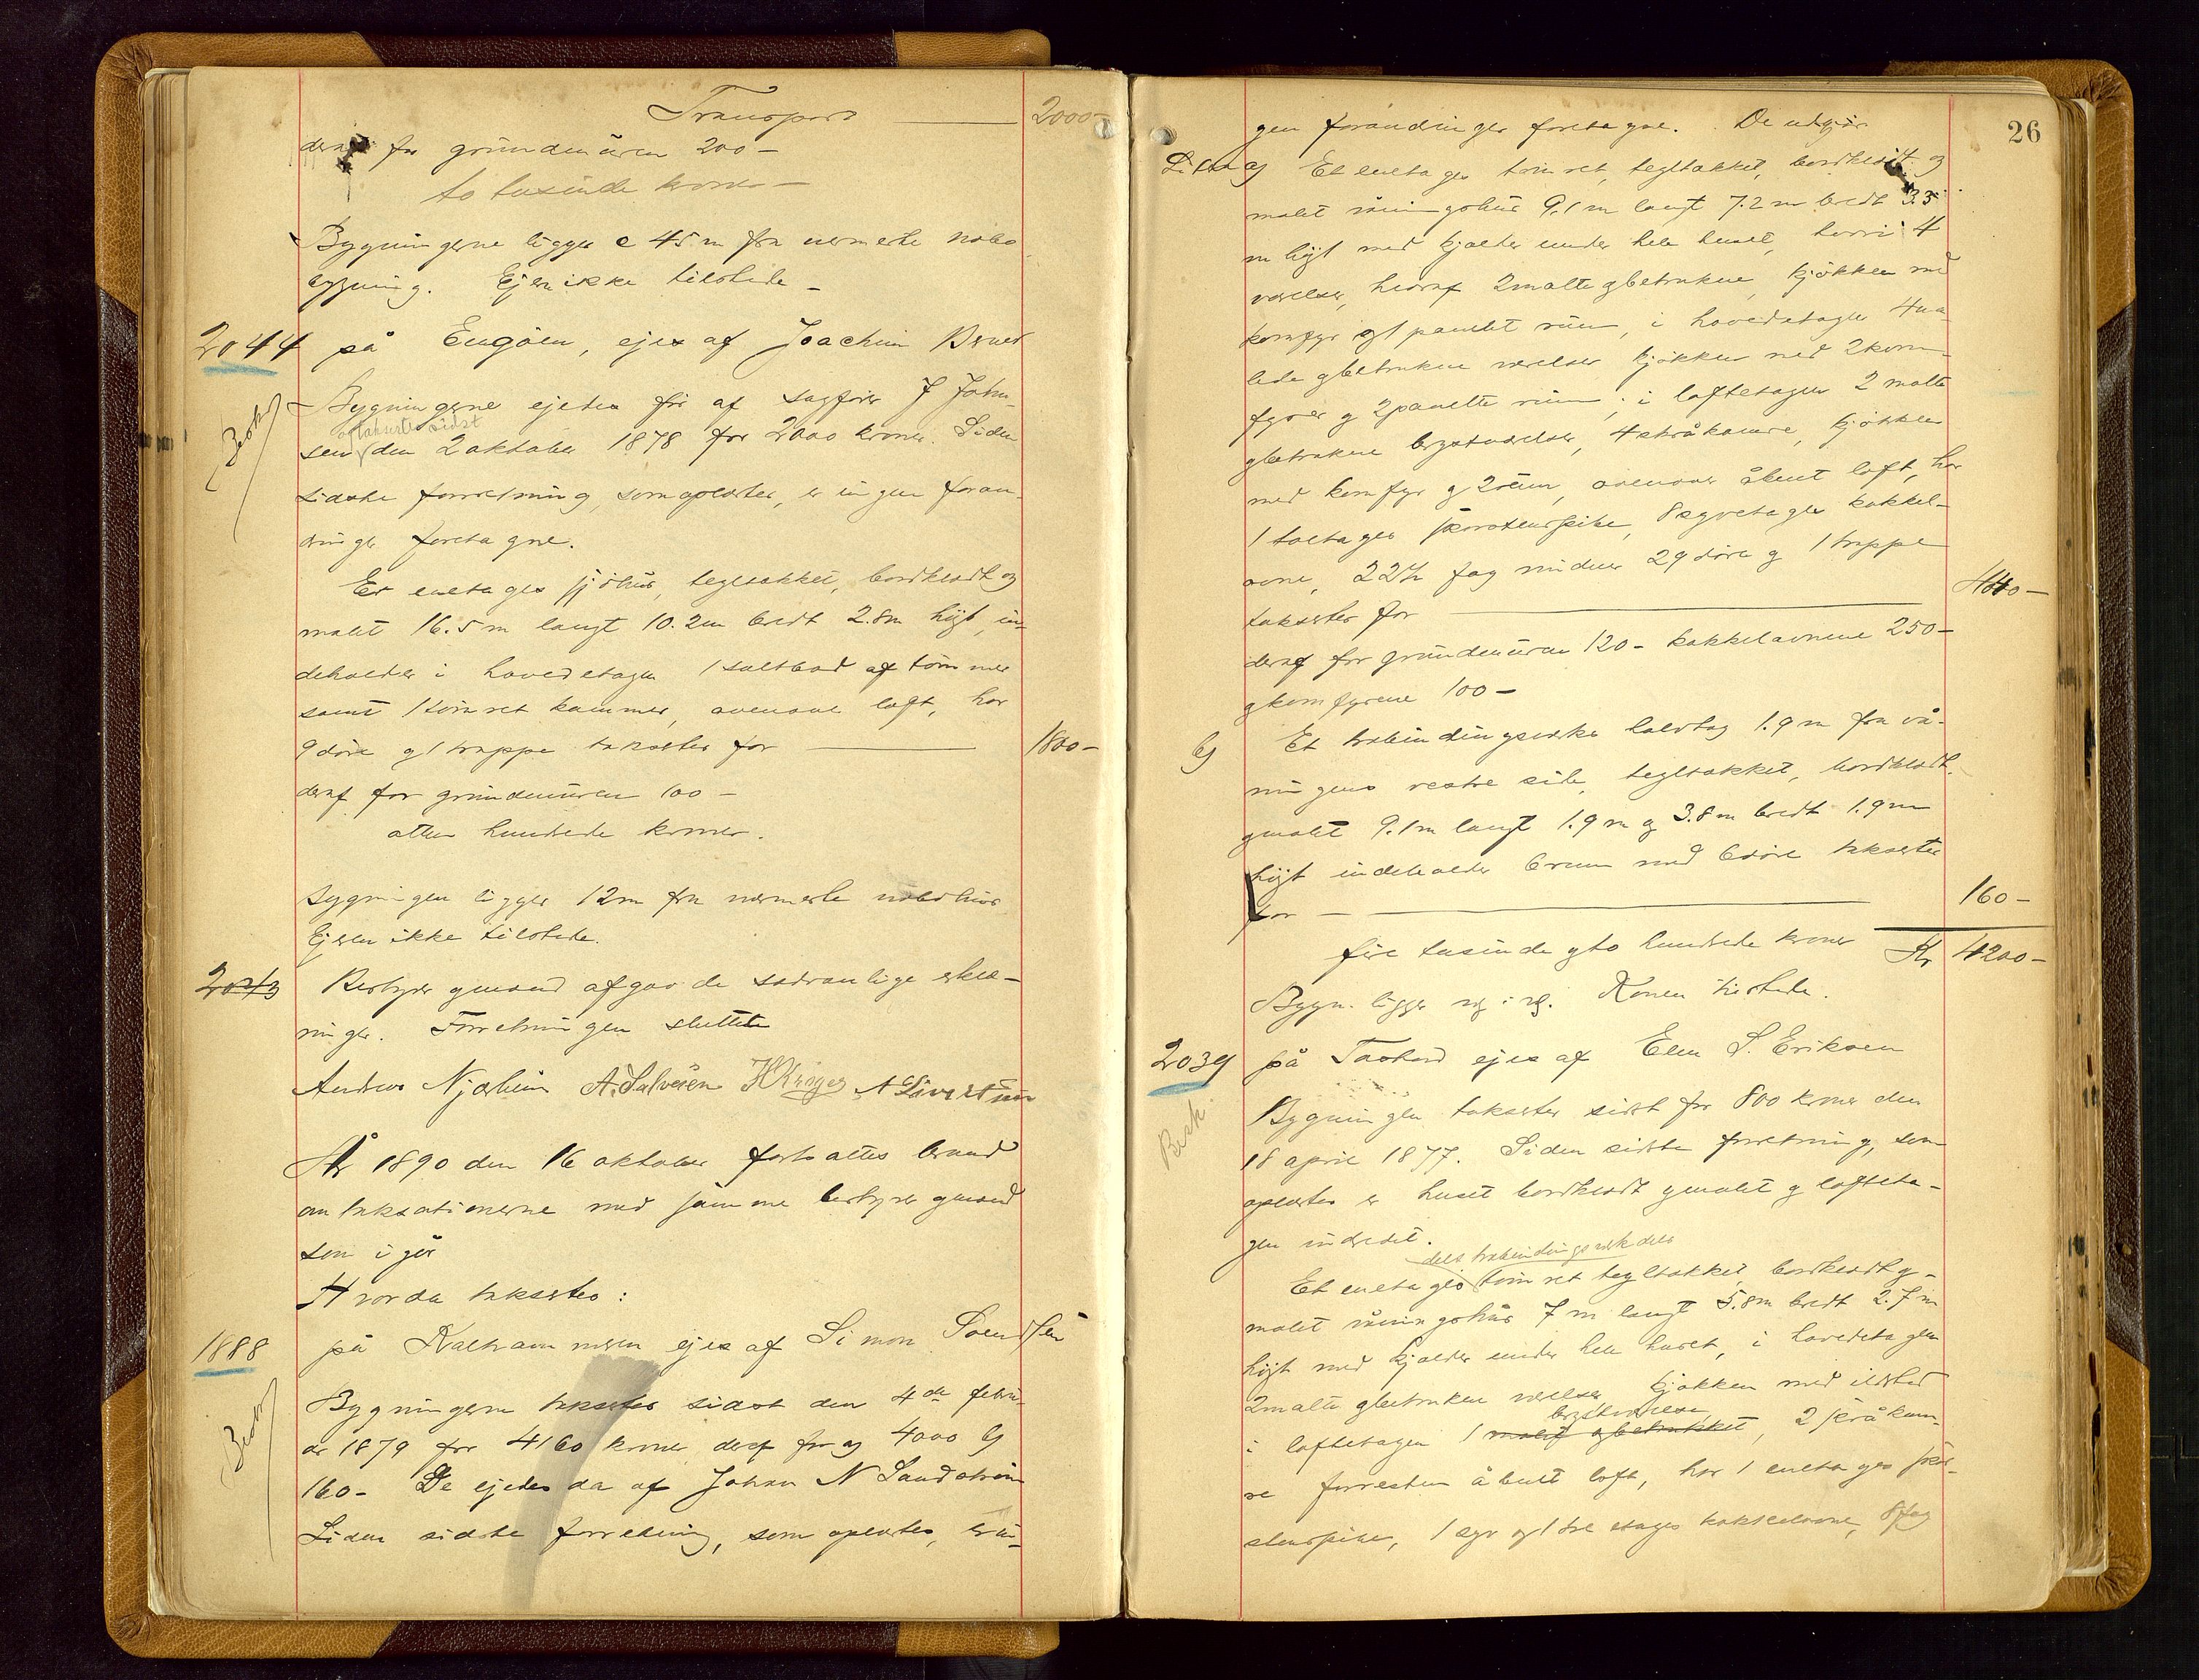 Transport 2000-
deraf for grundmuren 200 -
to tusinde kroner -
Bygningerne ligger c 45 m fra nærmeste nabo
bygning. Ejeren ikke tilstede -
2044 på Engøen, ejes af Joachim
Bygningerne ejedes før af sagfører J John-
og taksertes sidst
sen den 2 oktober 1878 for 2000 kroner. Siden
sidste forretning, som oplæstes, er ingen foran-
dringer foretagne.
Et enetages sjøhus, tegltækket, bordklædt og
malet 16.5 m langt 10.2 m bredt 2.8 m højt, in-
deholder i hovedetagen 1 saltbod af tømmer
samt 1 tømret kammer, ovenover loft, har
9 døre og 1 trappe takseres for 1800-
deraf for grundmuren 100 -
atten hundrede kroner.
Bygningen ligger 12 m fra nærmeste nabohus
Ejeren ikke tilstede.
2043 Bestyrer og mænd afgav de sædvanlige erklæ-
ringer. Forretningen sluttet
Andreas Njærheim A. Salvesen H Krøger A Sivertsen
År 1890 den 16 oktober fortsattes brand
omtaksationerne med samme bestyrer og mænd
som i går
Hvorda takseres:
1888 på Kalhammeren ejes af Simon Svendsen
Bygningerne takseres sidst den 4de febru-
ar 1879 for 4160 kroner deraf for a) 4000 b)
160 - De ejedes da af Johan N Sandstrøm
Siden sidste forretning, som oplæstes, er in-
26
gen forandringer foretagne. De udgjør
Litra a) Et enetages tømret, tegltækket, bordklædt og
malet våningshus 9.1 m langt 7.2 m bredt 3.5
m højt med kjælder under hele huset, hvori 4
værelser, hvoraf 2 malte og betrukne, kjøkken med
komfyr og 1 panelt rum, i hovedetagen 4 ma-
lede og betrukne værelser kjøkken med 2 kom-
fyrer og 2 panelte rum; i loftetagen 2 malte
og betrukne brystværelser, 4 skråkamre, kjøkken
med komfyr og 2 rum, ovenover åbent loft, har
1 toetages skorstenspibe, 8 syvetages kakkel-
ovne, 22½ fag vinduer 29 døre og 1 trappe
takseres for 4040-
deraf for grundmuren 120 - kakkelovnene 250 -
og komfyrene 100 -
b) Et trebindingsverks halvtag 1.9 m fra vå-
ningens vestre side, tegltækket, bordklædt
og malet 9.1 m langt 1.9 m og 3.8 m bredt 1.9 m
højt indeholder 6 rum med 6 døre takseres
for 160 -
fire tusinde og to hundrede kroner Kr 4200 -
Bygn. ligger Konen tilstede.
2039 på Tasted ejes af Elen S. Eriksen
Besk.
Bygningen takseres sidst for 800 kroner den
18 april 1877. Siden sidste forretning, som
oplæstes er huset bordklædt og malet og lofteta-
gen indredet.
dels trebindingsverk dels
Et enetages tømret tegltækket, bordklædt og
malet våningshus 7 m langt 5.8 m bredt 2.7 m
højt med kjælder under hele huset, i hovedetagen
2 malte og betrukne værelser kjøkken med ildsted
brystværelse
i loftetagen 1 malet og betrukket, 2 skråkam-
re forresten åbent loft, har 1 enetages skor-
stenspibe, 1 syv og 1 tre etages kakkelovne, 8 fag